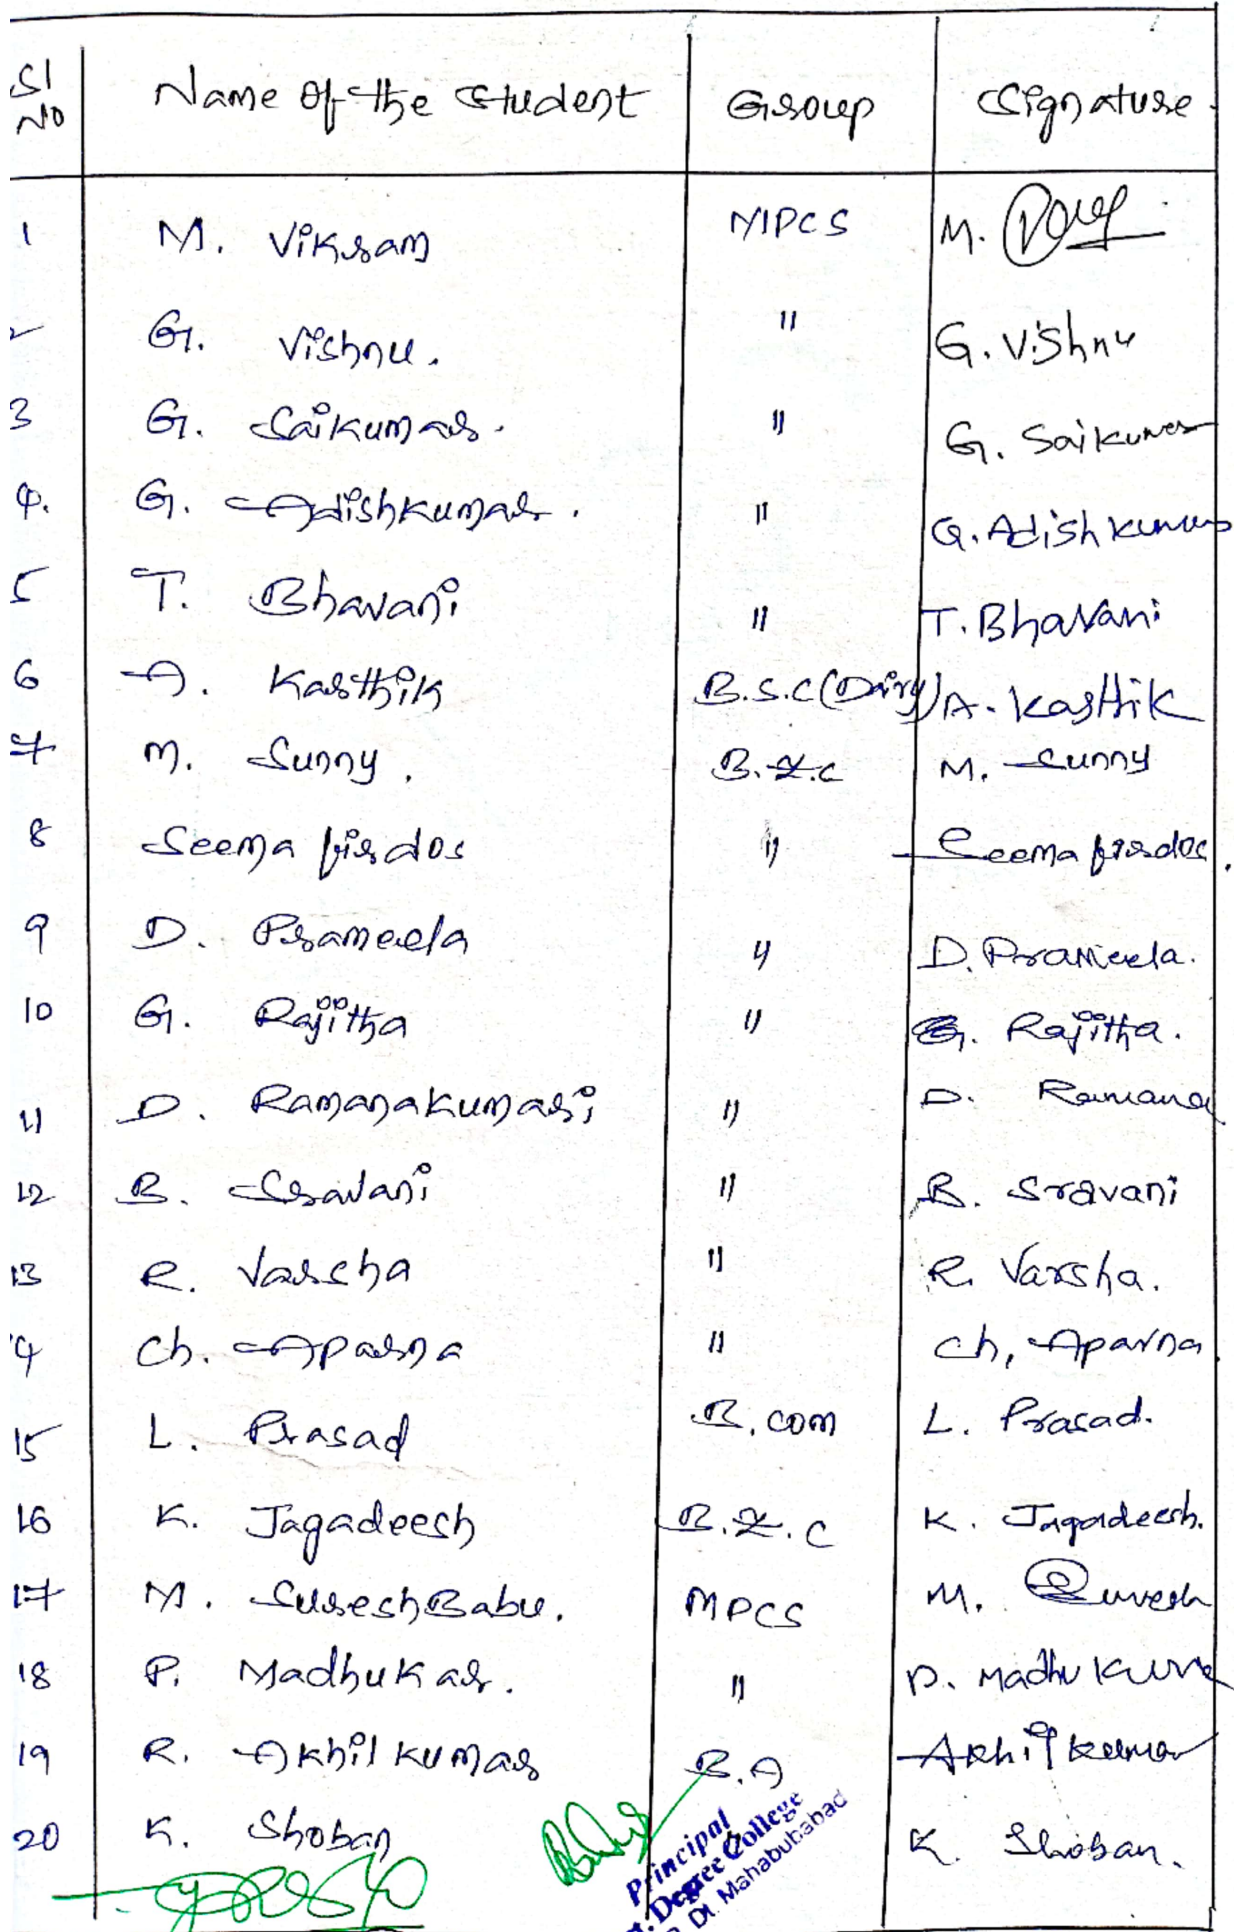 Sl No Name of the Student Group Signature
1 M. Vikram MPCS M.
2 G. Vishnu. " G. Vishnu
3 G. Saikumar. " G. Saikumar
4. G. Adishkumar. " G. Adish kumar
5 T. Bhavani " T. Bhavani
6 A. Karthik B.S.C (Diry) A. Karthik
7 M. Sunny. B.Z.C M. Sunny
8 Seema firdos " Seema firdos.
9 D. Prameela " D. Prameela.
10 G. Rajitha " G. Rajitha.
11 D. Ramanakumari " D. Ramana
12 B. Sravani " B. Sravani
13 R. Varsha " R. Varsha.
14 Ch. Aparna " Ch, Aparna
15 L. Prasad B.com L. Prasad.
16 K. Jagadeesh B.Z.C K. Jagadeesh.
17 M. SureshBabu. MPCS M. Suresh
18 P. Madhukar. " P. Madhu
19 R. Akhil kumar B.A Akhil kumar
20 K. Shoban K. Shoban.
Principal
Degree College
Dt. Mahabubabad